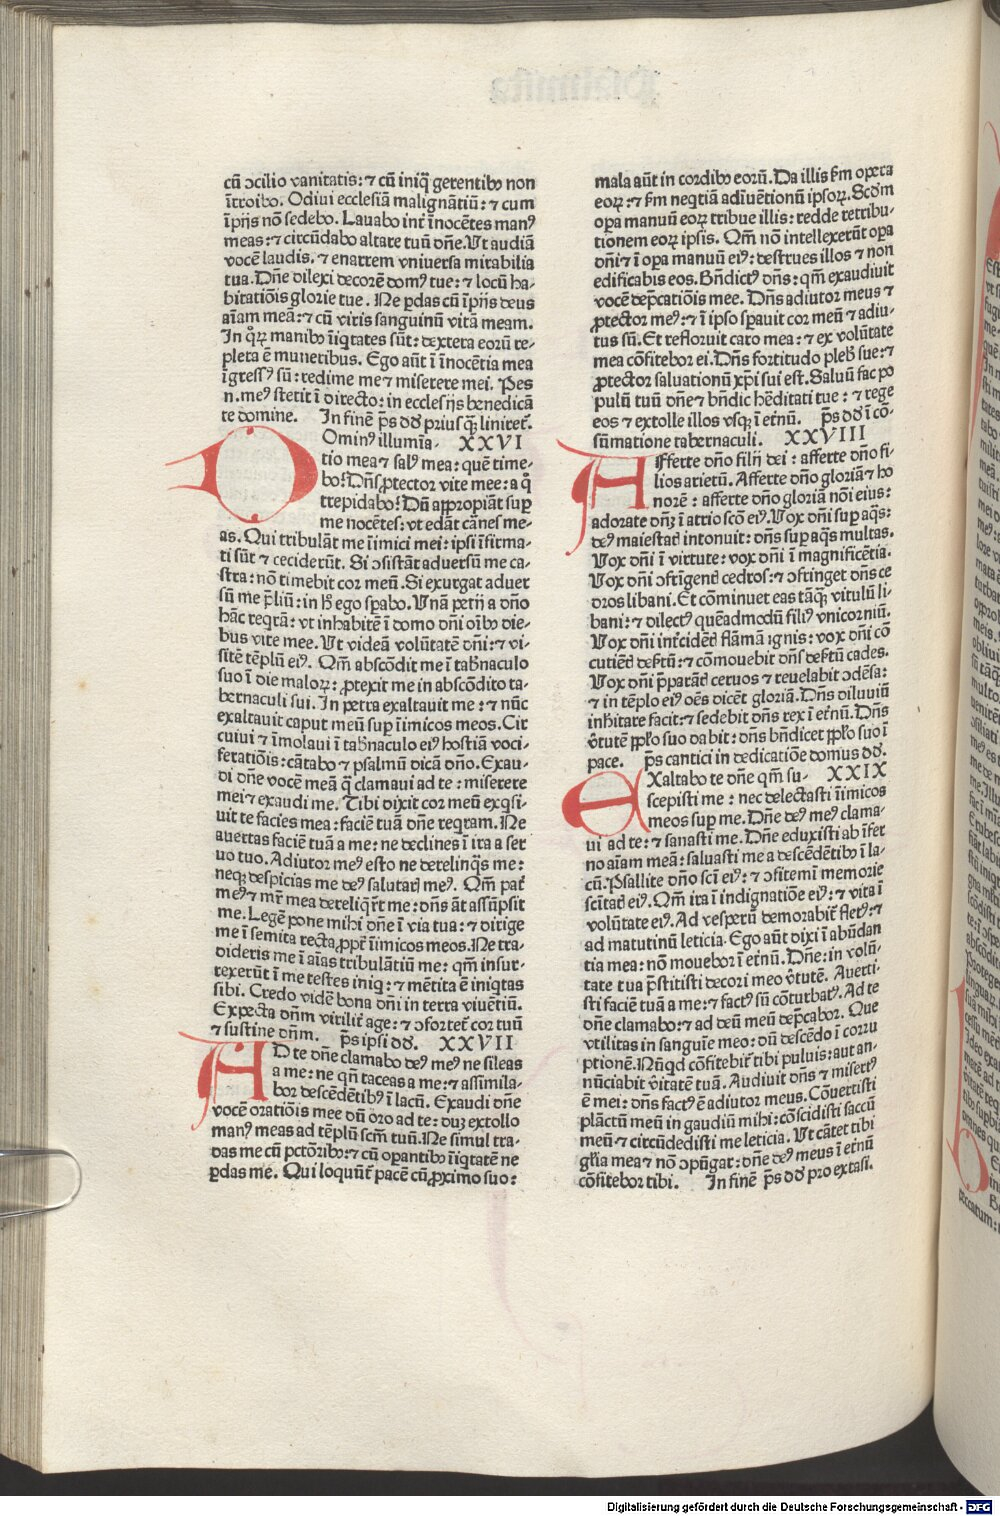 cū ↄcilio vanitatis: ⁊ cū iniq̄ gerentibꝫ non
ītroibo. Odiui ecclesiā malignātiū: ⁊ cum
īpijs nō sedebo. Lauabo int̄ īnocētes manꝰ
meas: ⁊ circūdabo altare tuū dñe. Ut audiā
vocē laudis. ⁊ enarrem vniuersa mirabilia
tua. Dñe dilexi decorē domꝰ tue: ⁊ locū ha-
bitatiōis glorie tue. Ne ꝑdas cū īpijs deus
aīam meā: ⁊ cū viris sanguinū vitā meam.
In qͦꝝ manibꝫ īiqtates sūt: dextera eorū re-
pleta ē muneribus. Ego aūt ī īnocētia mea
īgressꝰ sū: redime me ⁊ miserere mei. Pes
n. meꝰ stetit ī directo: in ecclesijs benedicā
te domine. In finē p̄s dd̄ priusq̄ linireť.
Ominꝰ illumīa- XXVI
tio mea ⁊ salꝰ mea: quē time-
bo? Dñs ꝓtector vite mee: a q̄
trepidabo? Dū appropiāt suꝑ
me nocētes: vt edāt cānes me-
as. Qui tribulāt me īimici mei: ipsi īfirma-
ti sūt ⁊ ceciderūt. Si ↄsistāt aduersū me ca-
stra: nō timebit cor meū. Si exurgat aduer
sū me p̄liū: in hͦ ego sꝑabo. Vnā petij a dño
hāc reqrā: vt inhabitē ī domo dñi oībꝫ die-
bus vite mee. Ut videā volūtatē dñi: ⁊ vi-
sitē tēplū eiꝰ. Qm̄ abscōdit me ī tab̄naculo
suo ī die maloꝝ: ꝓtexit me in abscōdito ta-
bernaculi sui. In petra exaltauit me: ⁊ nūc
exaltauit caput meū suꝑ īimicos meos. Cir
cuiui ⁊ īmolaui ī tab̄naculo eiꝰ hostiā voci-
feratiōis: cātabo ⁊ psalmū dicā dño. Exau-
di dñe vocē meā q̄ clamaui ad te: miserere
mei ⁊ exaudi me. Tibi dixit cor meū exqsi-
uit te facies mea: faciē tuā dñe reqram. Ne
auertas faciē tuā a me: ne declines ī ira a ser
uo tuo. Adiutor meꝰ esto ne derelinq̄s me:
neqꝫ despicias me deꝰ salutarꝭ meꝰ. Qm̄ pať
meꝰ ⁊ mr̄ mea dereliqr̄t me: dñs āt assūpsit
me. Legē pone mihi dñe ī via tua: ⁊ dirige
me ī semita recta ꝓpt̄ īimicos meos. Ne tra-
dideris me ī aīas tribulātiū me: qm̄ insur-
rexerūt ī me testes iniq: ⁊ mētita ē iniqtas
sibi. Credo vidē bona dñi in terra viuētiū.
Expecta dñm virilit̄ age: ⁊ ↄforteť cor tuū
⁊ sustine dñm. p̄s ipsi dd̄. XXVII
AD te dñe clamabo deꝰ meꝰ ne sileas
a me: ne qn̄ taceas a me: ⁊ assimila-
bor descēdētibꝰ ī lacū. Exaudi dñe
vocē orationis mee dū oro ad te: duꝫ extollo
manꝰ meas ad tēplū scm̄ tuū. Ne simul tra-
das me cū pctōribꝫ: ⁊ cū oꝑantibꝫ īiqtatē ne
ꝑdas me. Qui loquūť pacē cū ꝓximo suo:
mala aūt in cordibꝫ eorū. Da illis s̄m opera
eoꝝ: ⁊ s̄m neqtiā adīuētionū ipsoꝝ. Scdꝫm
oꝑa manuū eoꝝ tribue illis: redde retribu-
tionem eoꝝ ipsis. Qm̄ nō intellexerūt oꝑa
dñi ⁊ ī oꝑa manuū eiꝰ: destrues illos ⁊ non
edificabis eos. Bñdictꝰ dñs: qm̄ exaudiuit
vocē dep̄catiōis mee. Dñs adiutor meus ⁊
ꝓtector meꝰ: ⁊ ī ipso sꝑauit cor meū ⁊ adiu-
tus sū. Et refloruit caro mea: ⁊ ex volūtate
mea cōfitebor ei. Dñs fortitudo plebꝭ sue: ⁊
ꝓtector saluationū xp̄i sui est. Saluū fac po
pulū tuū dñe ⁊ bñdic hēditati tue: ⁊ rege
eos ⁊ extolle illos vsqꝫ ī et̄nū. p̄s dd̄ ī cō-
sūmatione tabernaculi. XXVIII
Afferte dño filij dei: afferte dño fi-
lios arietū. Afferte dño gloriā ⁊ ho
norē: afferte dño gloriā nōi eius:
adorate dñꝫ ī atrio scō eiꝰ. Vox dñi suꝑ aq̄s:
deꝰ maiestatꝭ intonuit: dñs suꝑ aq̄s multas.
Vox dñi ī virtute: vox dñi ī magnificētia.
Vox dñi ↄfrīgentꝭ cedros: ⁊ ↄfringet dñs ce
dros libani. Et cōminuet eas tāq̄ꝫ vitulū li-
bani: ⁊ dilectꝰ quēadmodū filiꝰ vnicorniū.
Vox dñi int̄cidētꝭ flāmā ignis: vox dñi cō
cutiētꝭ desr̄tū: ⁊ cōmouebit dñs desr̄tū cades.
Vox dñi p̄parātꝭ ceruos ⁊ reuelabit ↄdēsa:
⁊ in tēplo eiꝰ oēs dicēt gloriā. Dñs diluuiū
inhītare facit: ⁊ sedebit dñs rex ī et̄nū. Dñs
v̄tutē pplo suo dabit: dñs bñdicet pplo suo ī
pace. p̄s cantici in dedicatiōe domus dd̄.
Exaltabo te dñe qm̄ su- XXIX
scepisti me: nec delectasti īimicos
meos suꝑ me. Dñe deꝰ meꝰ clama-
ui ad te: ⁊ sanasti me. Dñe eduxisti ab īfer
no aīam meā: saluasti me a descēdētibꝫ ī la-
cū. Psallite dño scī eiꝰ: ⁊ ↄfitemī memorie
scītatꝭ eiꝰ. Qm̄ ira ī indignatiōe eiꝰ: ⁊ vita ī
volūtate eiꝰ. Ad vesperū demorabiť fletꝰ: ⁊
ad matutinū leticia. Ego aūt dixi ī abūdan
tia mea: nō mouebor ī et̄nū. Dñe: in volū-
tate tua p̄stitisti decori meo v̄tutē. Auerti-
sti faciē tuā a me: ⁊ factꝰ sū cōturbatꝰ. Ad te
dñe clamabo: ⁊ ad deū meū dep̄cabor. Que
vtilitas in sanguīe meo: dū descēdo ī corru
ptionē. Nūqd cōfitebiť tibi puluis: aut an-
nūciabit v̄itatē tuā. Audiuit dñs ⁊ misertꝰ
ē mei: dñs factꝰ ē adiutor meus. Cōuertisti
plāctū meū in gaudiū mihi: cōscidisti saccū
meū ⁊ circūdedisti me leticia. Ut cātet tibi
gl̄ia mea ⁊ nō ↄpūgar: dñe deꝰ meus ī et̄nū
cōfitebor tibi. In finē p̄s dd̄ pro extasi.
Digitalisierung gefördert durch die Deutsche Forschungsgemeinschaft - DFG